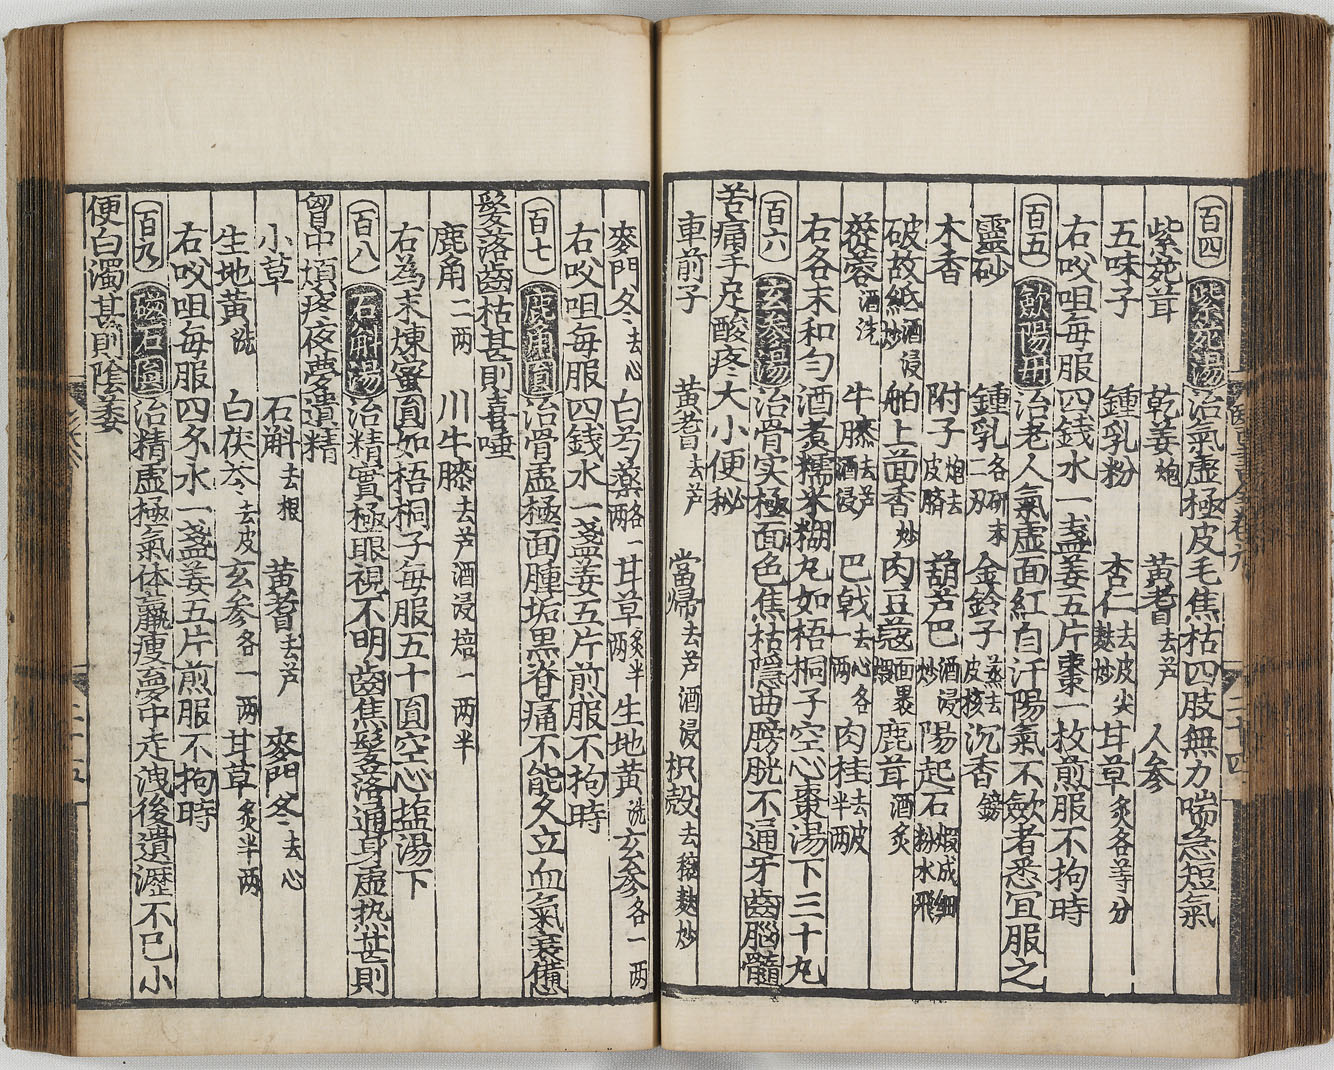 百四 紫菀湯 治氣虛極皮毛焦枯四肢無力喘急短氣
紫菀茸 乾姜炮 黃耆去芦 人參
五味子 鍾乳粉 杏仁去皮尖麩炒 甘草炙各等分
右㕮咀每服四錢水一盞姜五片棗一枚煎服不拘時
百五 歛陽丹 治老人氣虛面紅自汗陽氣不歛者悉宜服之
靈砂 鍾乳各研末二刄 金鈴子蒸去皮核 沉香鎊
木香 附子炮去皮臍 葫芦巴酒浸炒 陽起石煆成細粉水飛
破故紙酒浸炒 舶上茴香炒 肉豆蔻面裹煨 鹿茸酒炙
蓯蓉酒洗 牛膝去芦酒浸 巴戟去心各一两 肉桂去皮半两
右各末和勻酒煮糯米糊丸如梧桐子空心棗湯下三十丸
百六 玄參湯 治骨实極面色焦枯隱曲膀胱不通牙齒腦髓
苦痛手足酸疼大小便秘
車前子 黃耆去芦 當帰去芦酒浸 枳殼去穣麩炒
麥門冬去心 白芍藥各一两 甘草炙半两 生地黃洗 玄參各一两
右㕮咀每服四錢水一盞姜五片煎服不拘時
百七 鹿角圓 治骨虛極面腫垢黑脊痛不能久立血氣衰憊
髮落齒枯甚則喜唾
鹿角二两 川牛膝去芦酒浸焙一两半
右為末煉蜜圓如梧桐子每服五十圓空心塩湯下
百八 石斛湯 治精實極眼視不明齒焦髮落通身虛热甚則
胷中煩疼夜夢遺精
小草 石斛去根 黃耆去芦 麥門冬去心
生地黃洗 白茯苓去皮 玄參各一两 甘草炙半两
右㕮咀每服四分水一盞姜五片煎服不拘時
百九 磁石圓 治精虛極氣体羸瘦夢中走洩後遺瀝不已小
便白濁甚則陰委